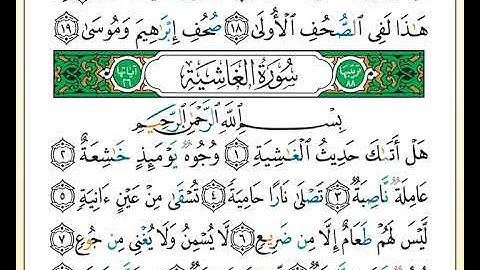 هَٰذَا لَفِي ٱلصُّحُفِ ٱلْأُولَىٰ ١٨ صُحُفِ إِبْرَٰهِيمَ وَمُوسَىٰ ١٩
ترتيبها ٨٨ سُورَةُ الغَاشِيَةِ آياتها ٢٦
بِسْمِ ٱللَّهِ ٱلرَّحْمَٰنِ ٱلرَّحِيمِ
هَلْ أَتَىٰكَ حَدِيثُ ٱلْغَٰشِيَةِ ١ وُجُوهٌ يَوْمَئِذٍ خَٰشِعَةٌ ٢
عَامِلَةٌ نَّاصِبَةٌ ٣ تَصْلَىٰ نَارًا حَامِيَةً ٤ تُسْقَىٰ مِنْ عَيْنٍ ءَانِيَةٍ ٥
لَّيْسَ لَهُمْ طَعَامٌ إِلَّا مِن ضَرِيعٍ ٦ لَّا يُسْمِنُ وَلَا يُغْنِى مِن جُوعٍ ٧